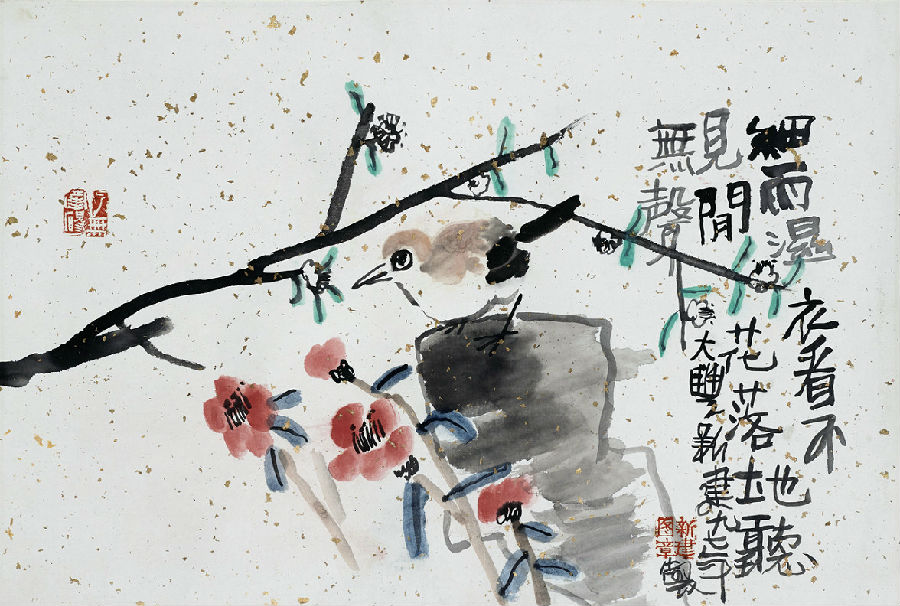 細雨濕
衣看不
見閒
花落
地聽
無聲
大豐新建九七年
新建
图章